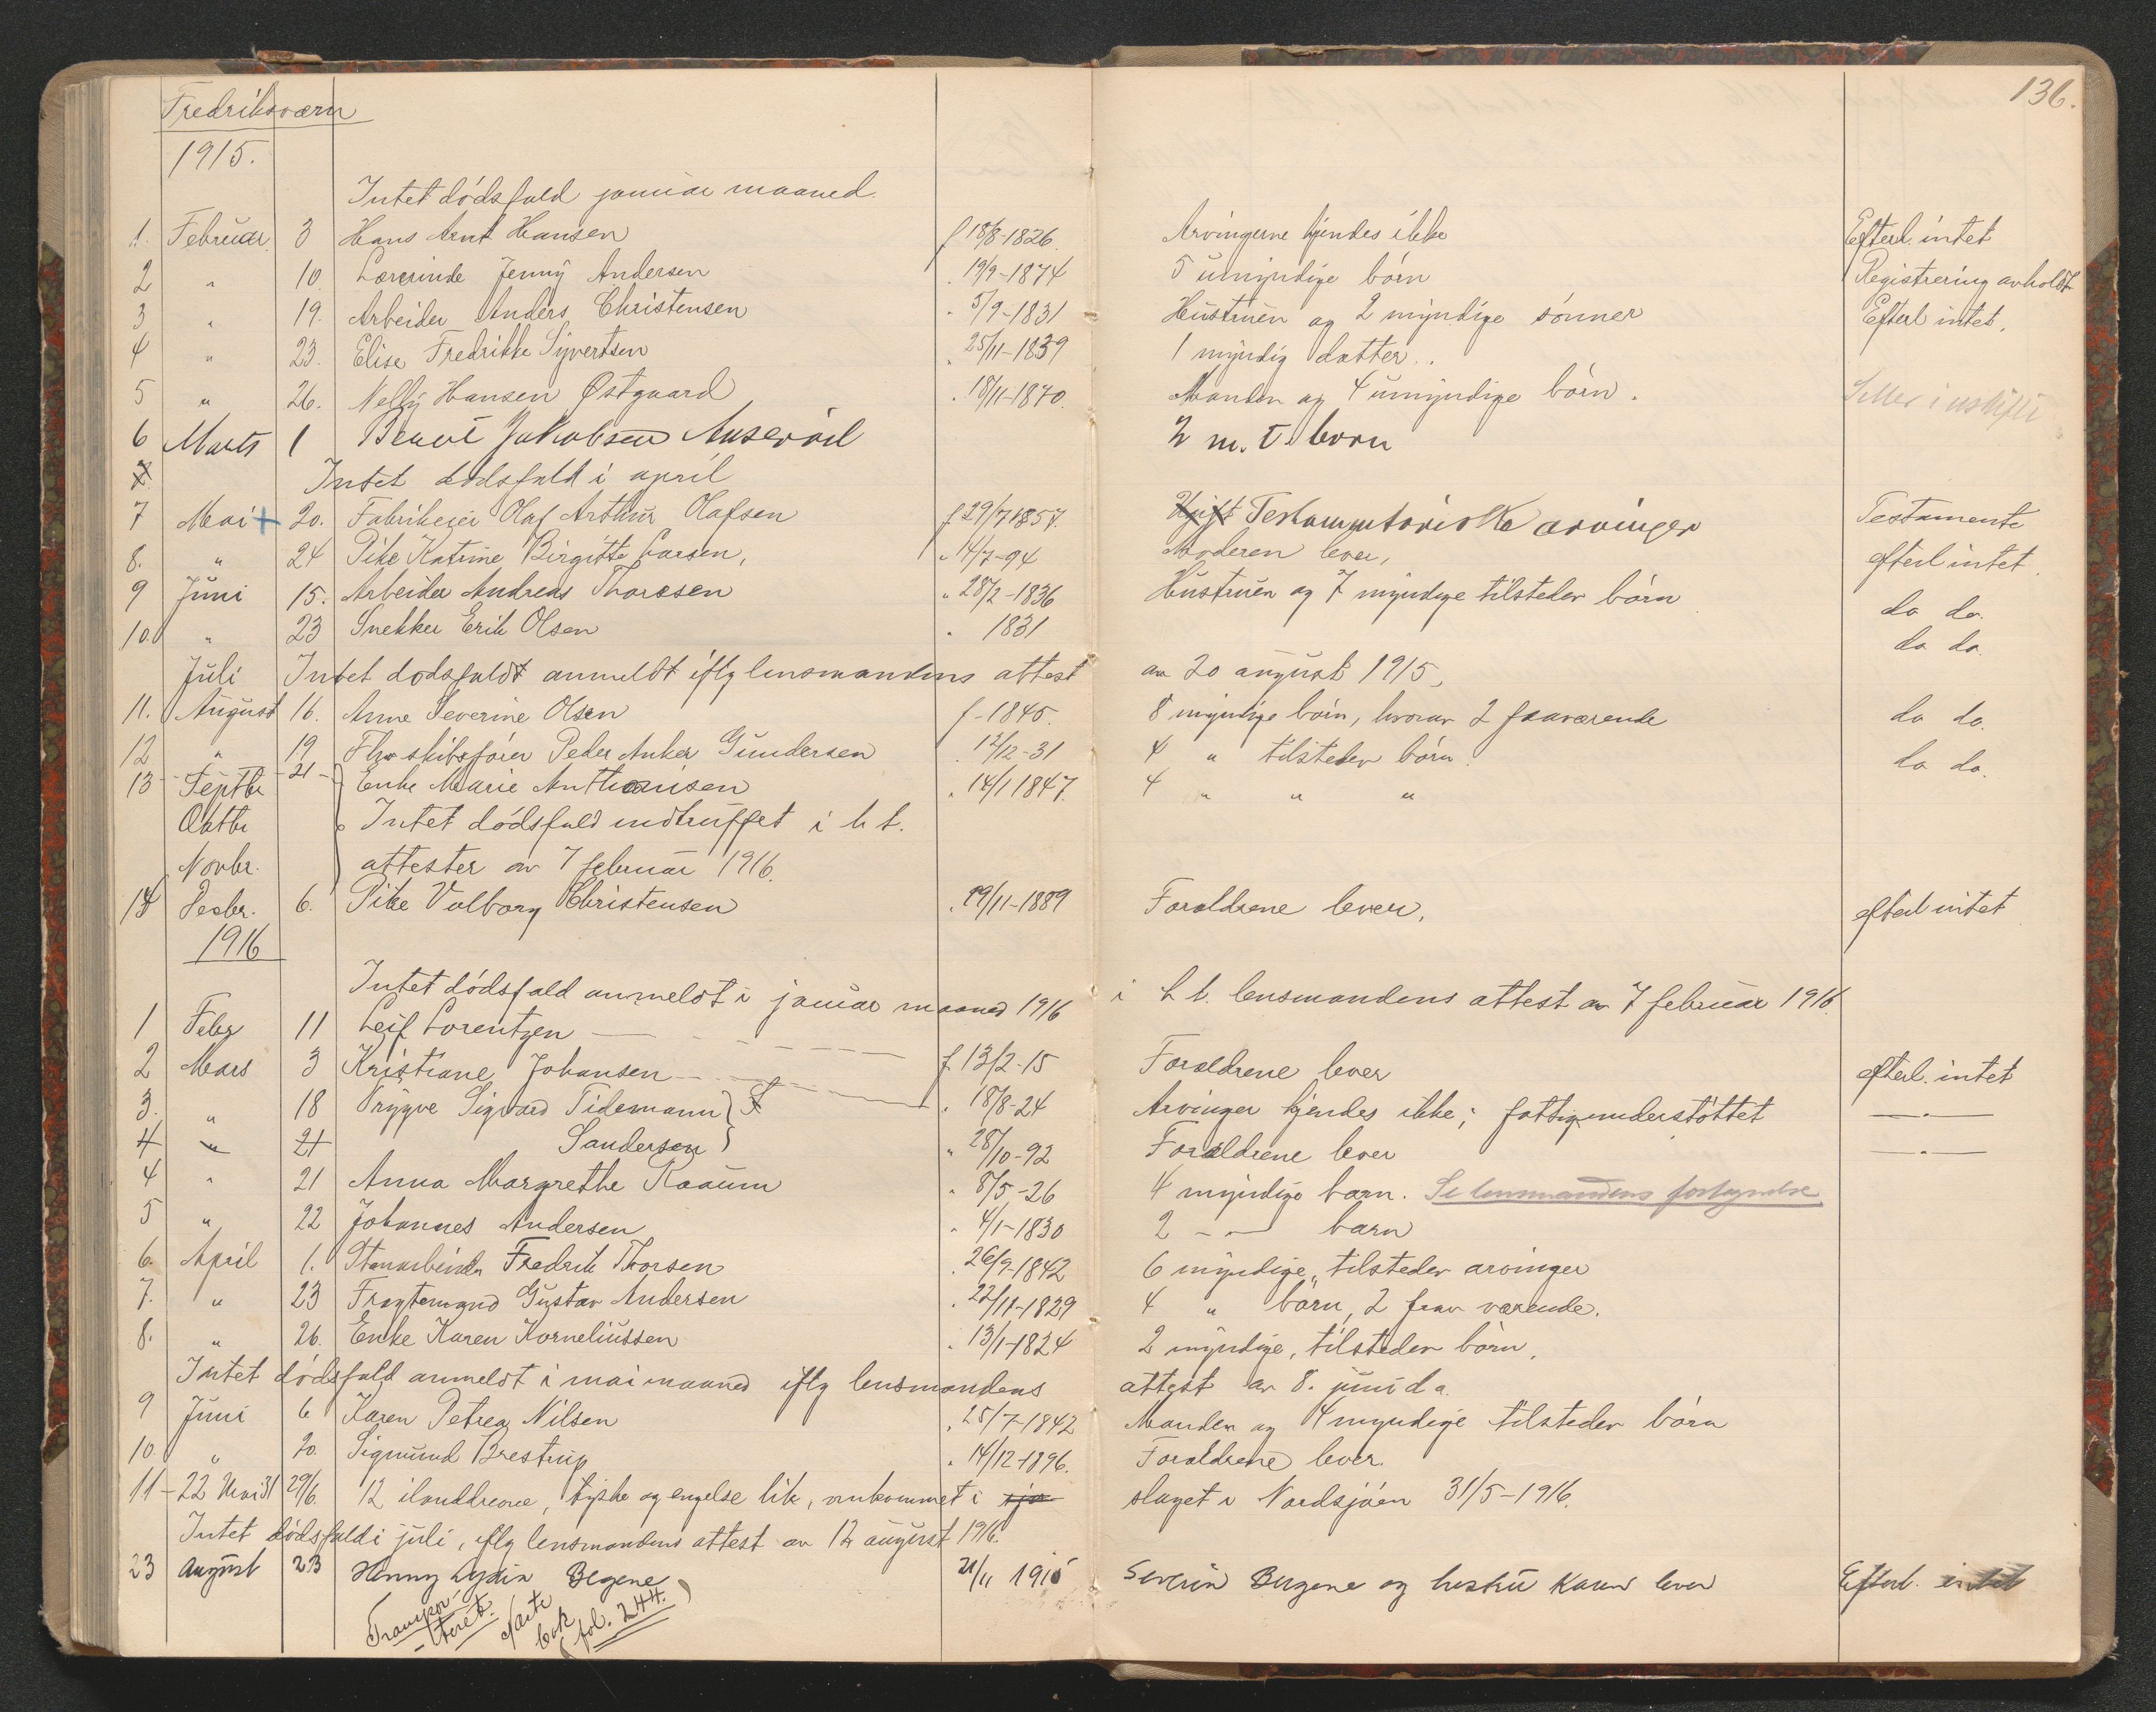 136.
Fredriksværn
1915.
Intet dödsfald januar maaned.
1. Februar 3 Hans Arnt Hansen f 18/8-1826. Arvingerne kjendes ikke Efterl. intet
2 " 10. Lærerinde Jenny Andersen . 19/9-1874 5 umyndige börn Registrering avholdt
3 " 19. Arbeider Anders Christensen " 5/9-1831 Hustruen og 2 myndige sönner Efterl intet.
4 " 23. Elise Fredrikke Syvertsen " 25/11-1839 1 myndig datter..
5 " 26. Nelly Hansen Østgaard . 18/11-1870. Manden og 4 umyndige börn. Sitter i uskifte
6 Marts 1 Jakobsen 2 m. t. born
7. Intet dödsfald i april
7 Mai + 20. Fabrikeier Olaf Arthur Olafsen f 29/7 1857. Ugift Testamentariske arvinger Testamente
8. " 24 Pike Katrine Birgitte Larsen, " 14/7-94 Moderen lever, efterl intet.
9 Juni 15. Arbeider Andreas Thoresen " 28/2-1836 Hustruen og 7 myndige tilstedev börn do do.
10. " 23 Snekker Erik Olsen " 1831 do do.
Juli Intet dodsfaldt anmeldt iflg lensmandens attest av 20 august 1915.
11. August 16. Anne Severine Olsen f-1845. 8 myndige börn, hvorav 2 fraværende do do.
12 " 19 Fhv skibsförer Peder Anker Gundersen . 12/12-31 4 " tilstedev börn. do do.
13 - Septbr - 21 - Enke Marie Anthonisen . 14/1 1847. 4 " " "
Oktbr Intet dödsfald indtruffet i h t.
Novbr. attester av 7 februar 1916.
14 Decbr. 6. Pike Valborg Christensen . 29/11-1889 Foraldrene lever. efterl intet
1916
Intet dödsfald anmeldt i januar maaned 1916 i h t. lensmandens attest av 7 februar 1916.
1 Febr 11 Leif Lorentzen f 13/2-15 Foraldrene lever efterl. intet
2 Mars 3 Kristiane Johansen . 18/8-24 Arvinger kjendes ikke; fattigunderstöttet — " —
3. " 18 Trygve Sigvard Tidemann
4 " 21 Sandersen " 28/10-92 Foraldrene lever — " —
4 " 21 Anna Margrethe Raaum " 8/5-26 4 myndige barn. Se lensmandens
5 " 22 Johannes Andersen . 4/1-1830 2 - " - barn
6. April 1. Stenarbeider Fredrik Thorsen . 26/9-1842 6 myndige tilstedev arvinger
7. " 23 Fragtemand Gustav Andersen . 22/11-1829 4 " börn, 2 fraværende.
8. " 26. Enke Karen Korneliussen . 13/1-1824 2 myndige, tilstedev börn.
Intet dödsfald anmeldt i mai maaned iflg lensmandens attest av 8. juni d a.
9 Juni 6 Karen Petrea Nilsen . 25/7-1842 Manden og 4 myndige tilstedev börn
10. " 20. Sigmund Brestrup . 14/12-1896. Foraldrene lever.
11-22 Mai 31 29/6. 12 ilanddrevne, tyske og engelske lik, omkommet i sjø slaget i Nordsjöen 31/5-1916.
Intet dödsfald i juli, iflg lensmandens attest av 12 august 1916.
23 August 23 Henny Lydia Bergene 21/11 1915 Severin Bergene og hustru Karen lever Efterl. intet
Transpor-
teret. Næste
bok
(fol. 244.)